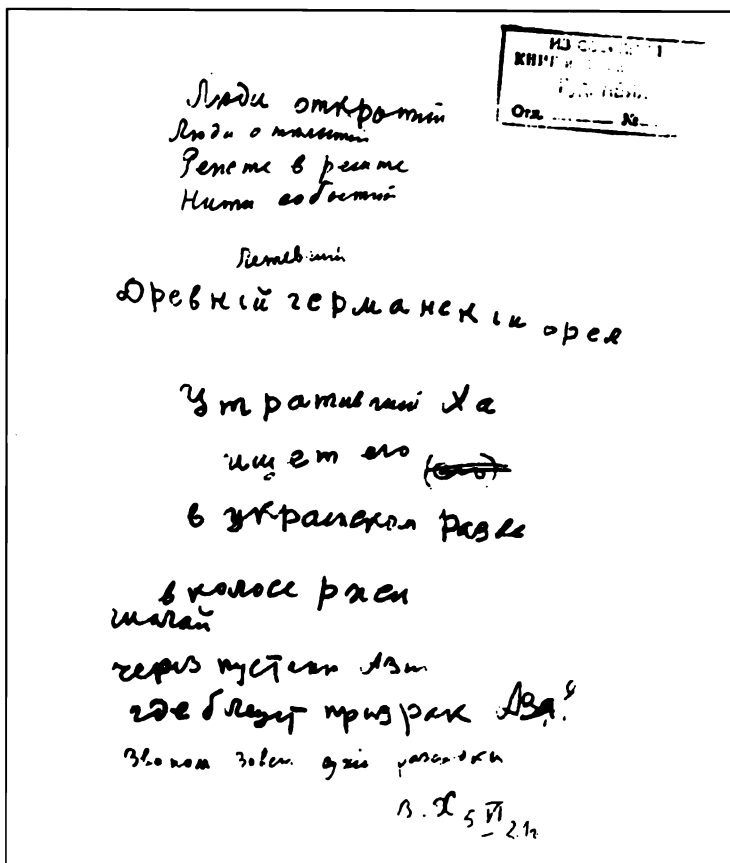 ИЗ
КНИГ
Отд. № 
Люди открытий
Люди отплытий
в решете
Нити событий
Летевший
Древній германскій орел
Утративший Ха
ищет его
в украинском разве
в колосе ржи
шагай
через пустыни Азии
где блещет призрак Аза
Звоном зовет сухие
В. Х 5 VI 21г